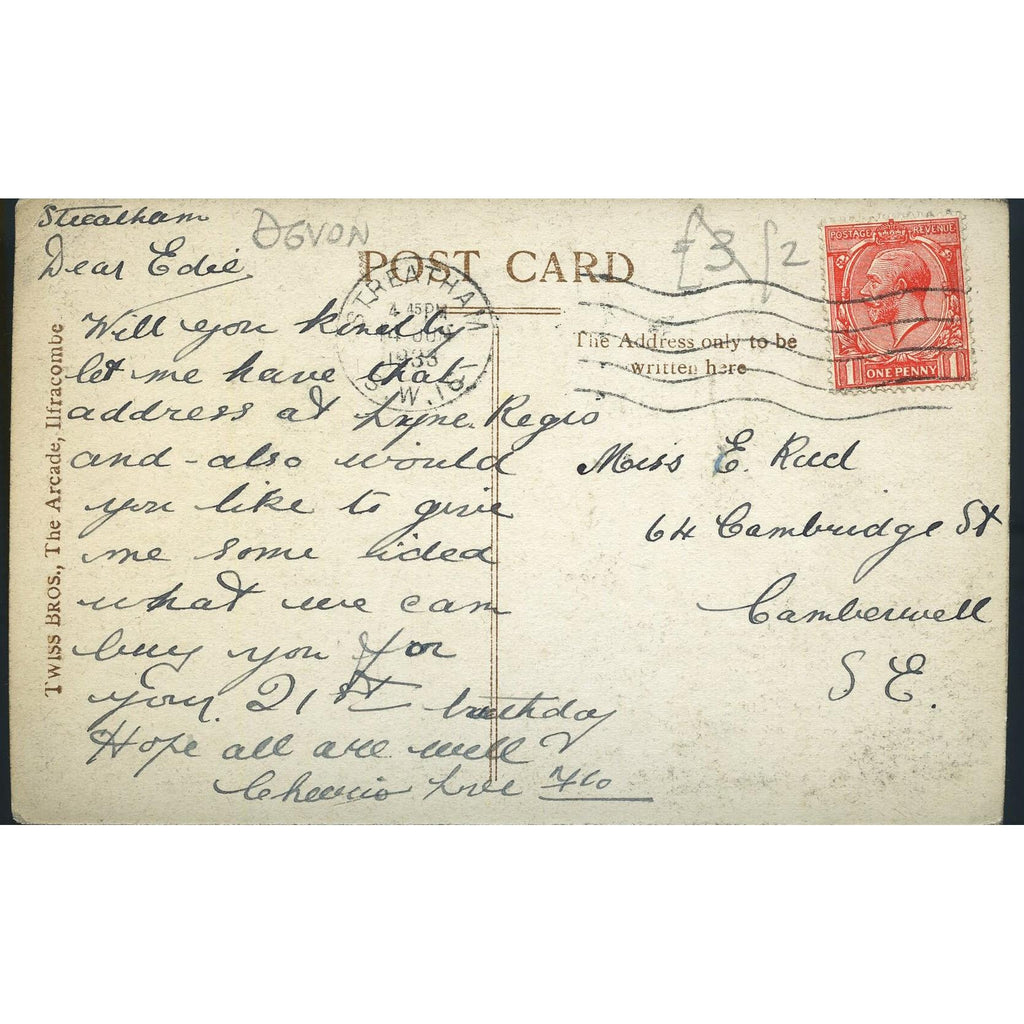 Streatham
Dear Edie,
Will you kindly
let me have that
address at Lyme. Regis
and - also would
you like to give
me some lidea
what we can
buy you for
your 21st birthday
Hope all are well
Cheerio Love Flo
DEVON
£3 £2
POST CARD
STREATHAM
4 45 PM
14 JUN
1933
S.W.16
The Address only to be
written here
POSTAGE REVENUE
1 ONE PENNY 1
Miss E. Rud
64 Cambridge St
Camberwell
S E.
TWISS BROS., The Arcade, Ilfracombe